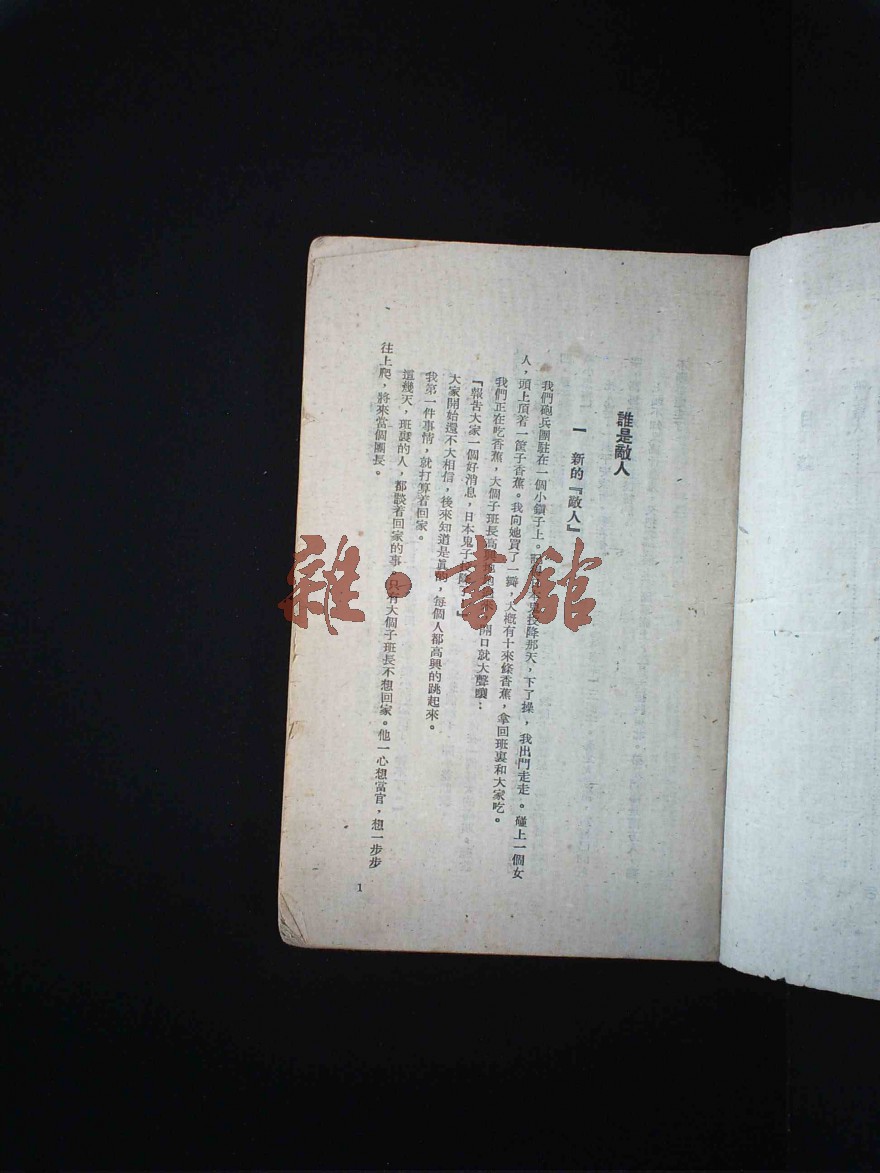 誰是敵人
一 新的『敵人』
我們砲兵團駐在一個小鎮子上。投降那天，下了操，我出門走走。碰上一個女
人，頭上頂着一筐子香蕉。我向她買了一瓣，大概有十來條香蕉，拿回班裏和大家吃。
我們正在吃香蕉，大個子班長高開口就大聲嚷：
『報告大家一個好消息，日本鬼子
大家開始還不大相信，後來知道是眞的，每個人都高興的跳起來。
我第一件事情，就打算着回家。
這幾天，班裏的人，都談着回家的事，只有大個子班長不想回家。他一心想當官，想一步步
往上爬，將來當個團長。
1
雜·書館